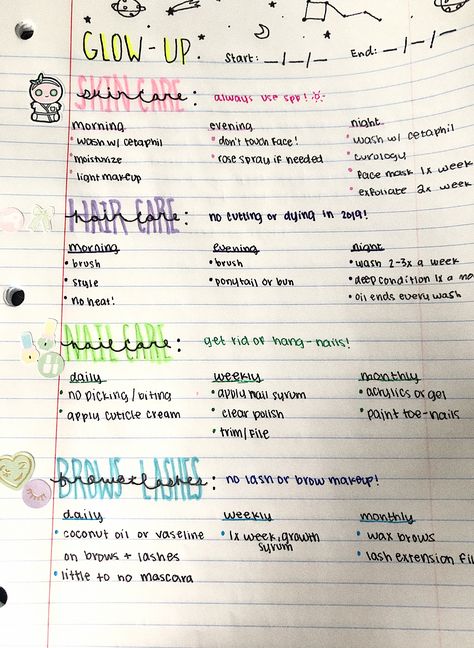 GLOW-UP
Start: _/_/_
End: _/_/_
skin care: always use spf!
morning
• wash w/ cetaphil
• moisturize
• light makeup
evening
• don't touch face!
• rose spray if needed
night
• wash w/ cetaphil
• curology
• face mask 1x week
• exfoliate 2x week
hair care: no cutting or dying in 2019!
morning
• brush
• style
• no heat!
evening
• brush
• ponytail or bun
night
• wash 2-3x a week
• deep condition 1x a mo
• oil ends every wash
nail care: get rid of hang-nails!
daily
• no picking/biting
• apply cuticle cream
weekly
• apply nail syrum
• clear polish
• trim/file
monthly
• acrylics or gel
• paint toe-nails
brows + lashes: no lash or brow makeup!
daily
• coconut oil or vaseline
on brows + lashes
• little to no mascara
weekly
• 1x week, growth
syrum
monthly
• wax brows
• lash extension fil